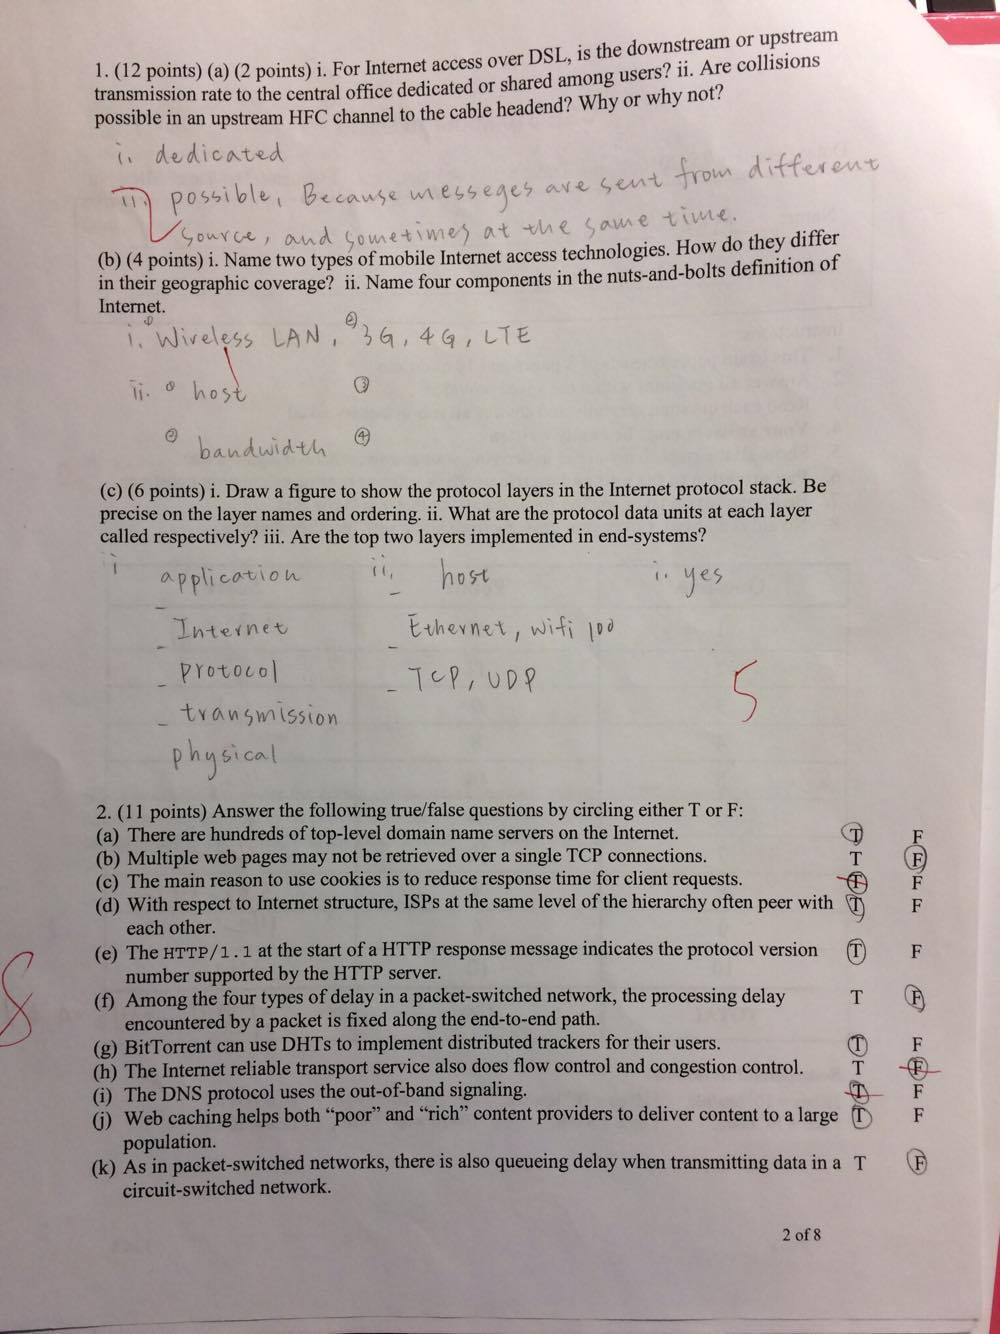 1. (12 points) (a) (2 points) i. For Internet access over DSL, is the downstream or upstream
transmission rate to the central office dedicated or shared among users? ii. Are collisions
possible in an upstream HFC channel to the cable headend? Why or why not?
i. dedicated
ii. possible, Because messeges are sent from different
source, and sometimes at the same time.
(b) (4 points) i. Name two types of mobile Internet access technologies. How do they differ
in their geographic coverage? ii. Name four components in the nuts-and-bolts definition of
Internet.
i. ① Wireless LAN, ② 3G, 4G, LTE
ii. ① host ③
② bandwidth ④
(c) (6 points) i. Draw a figure to show the protocol layers in the Internet protocol stack. Be
precise on the layer names and ordering. ii. What are the protocol data units at each layer
called respectively? iii. Are the top two layers implemented in end-systems?
i application ii. host i. yes
Internet Ethernet, wifi 100
protocol TCP, UDP 5
transmission
physical
2. (11 points) Answer the following true/false questions by circling either T or F:
(a) There are hundreds of top-level domain name servers on the Internet. T F
(b) Multiple web pages may not be retrieved over a single TCP connections. T F
(c) The main reason to use cookies is to reduce response time for client requests. T F
(d) With respect to Internet structure, ISPs at the same level of the hierarchy often peer with T F
each other.
(e) The HTTP/1.1 at the start of a HTTP response message indicates the protocol version T F
number supported by the HTTP server.
8
(f) Among the four types of delay in a packet-switched network, the processing delay T F
encountered by a packet is fixed along the end-to-end path.
(g) BitTorrent can use DHTs to implement distributed trackers for their users. T F
(h) The Internet reliable transport service also does flow control and congestion control. T F
(i) The DNS protocol uses the out-of-band signaling. T F
(j) Web caching helps both “poor” and “rich” content providers to deliver content to a large T F
population.
(k) As in packet-switched networks, there is also queueing delay when transmitting data in a T F
circuit-switched network.
2 of 8